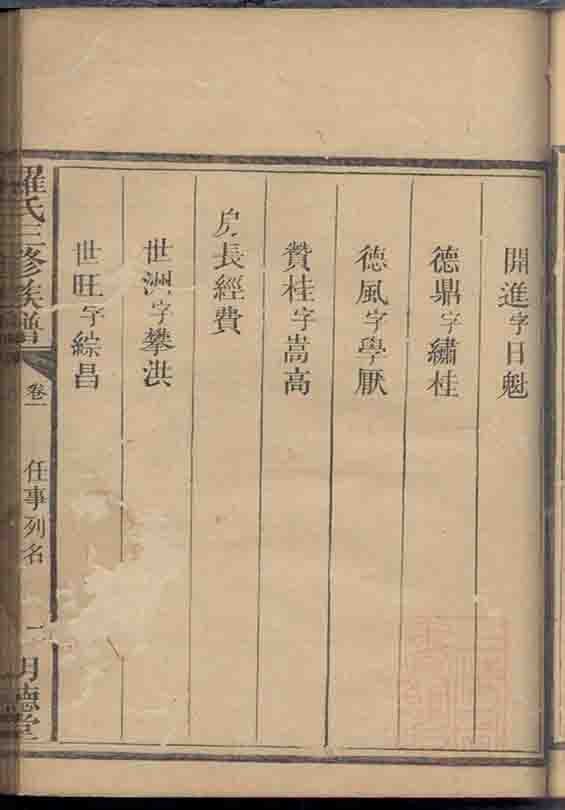 開進字日魁
德鼎字繡桂
德風字學厭
贊桂字嵩高
房長經費
世洲字攀洪
世旺字綜昌
羅氏三修族譜
卷一
任事列名
二
明德堂